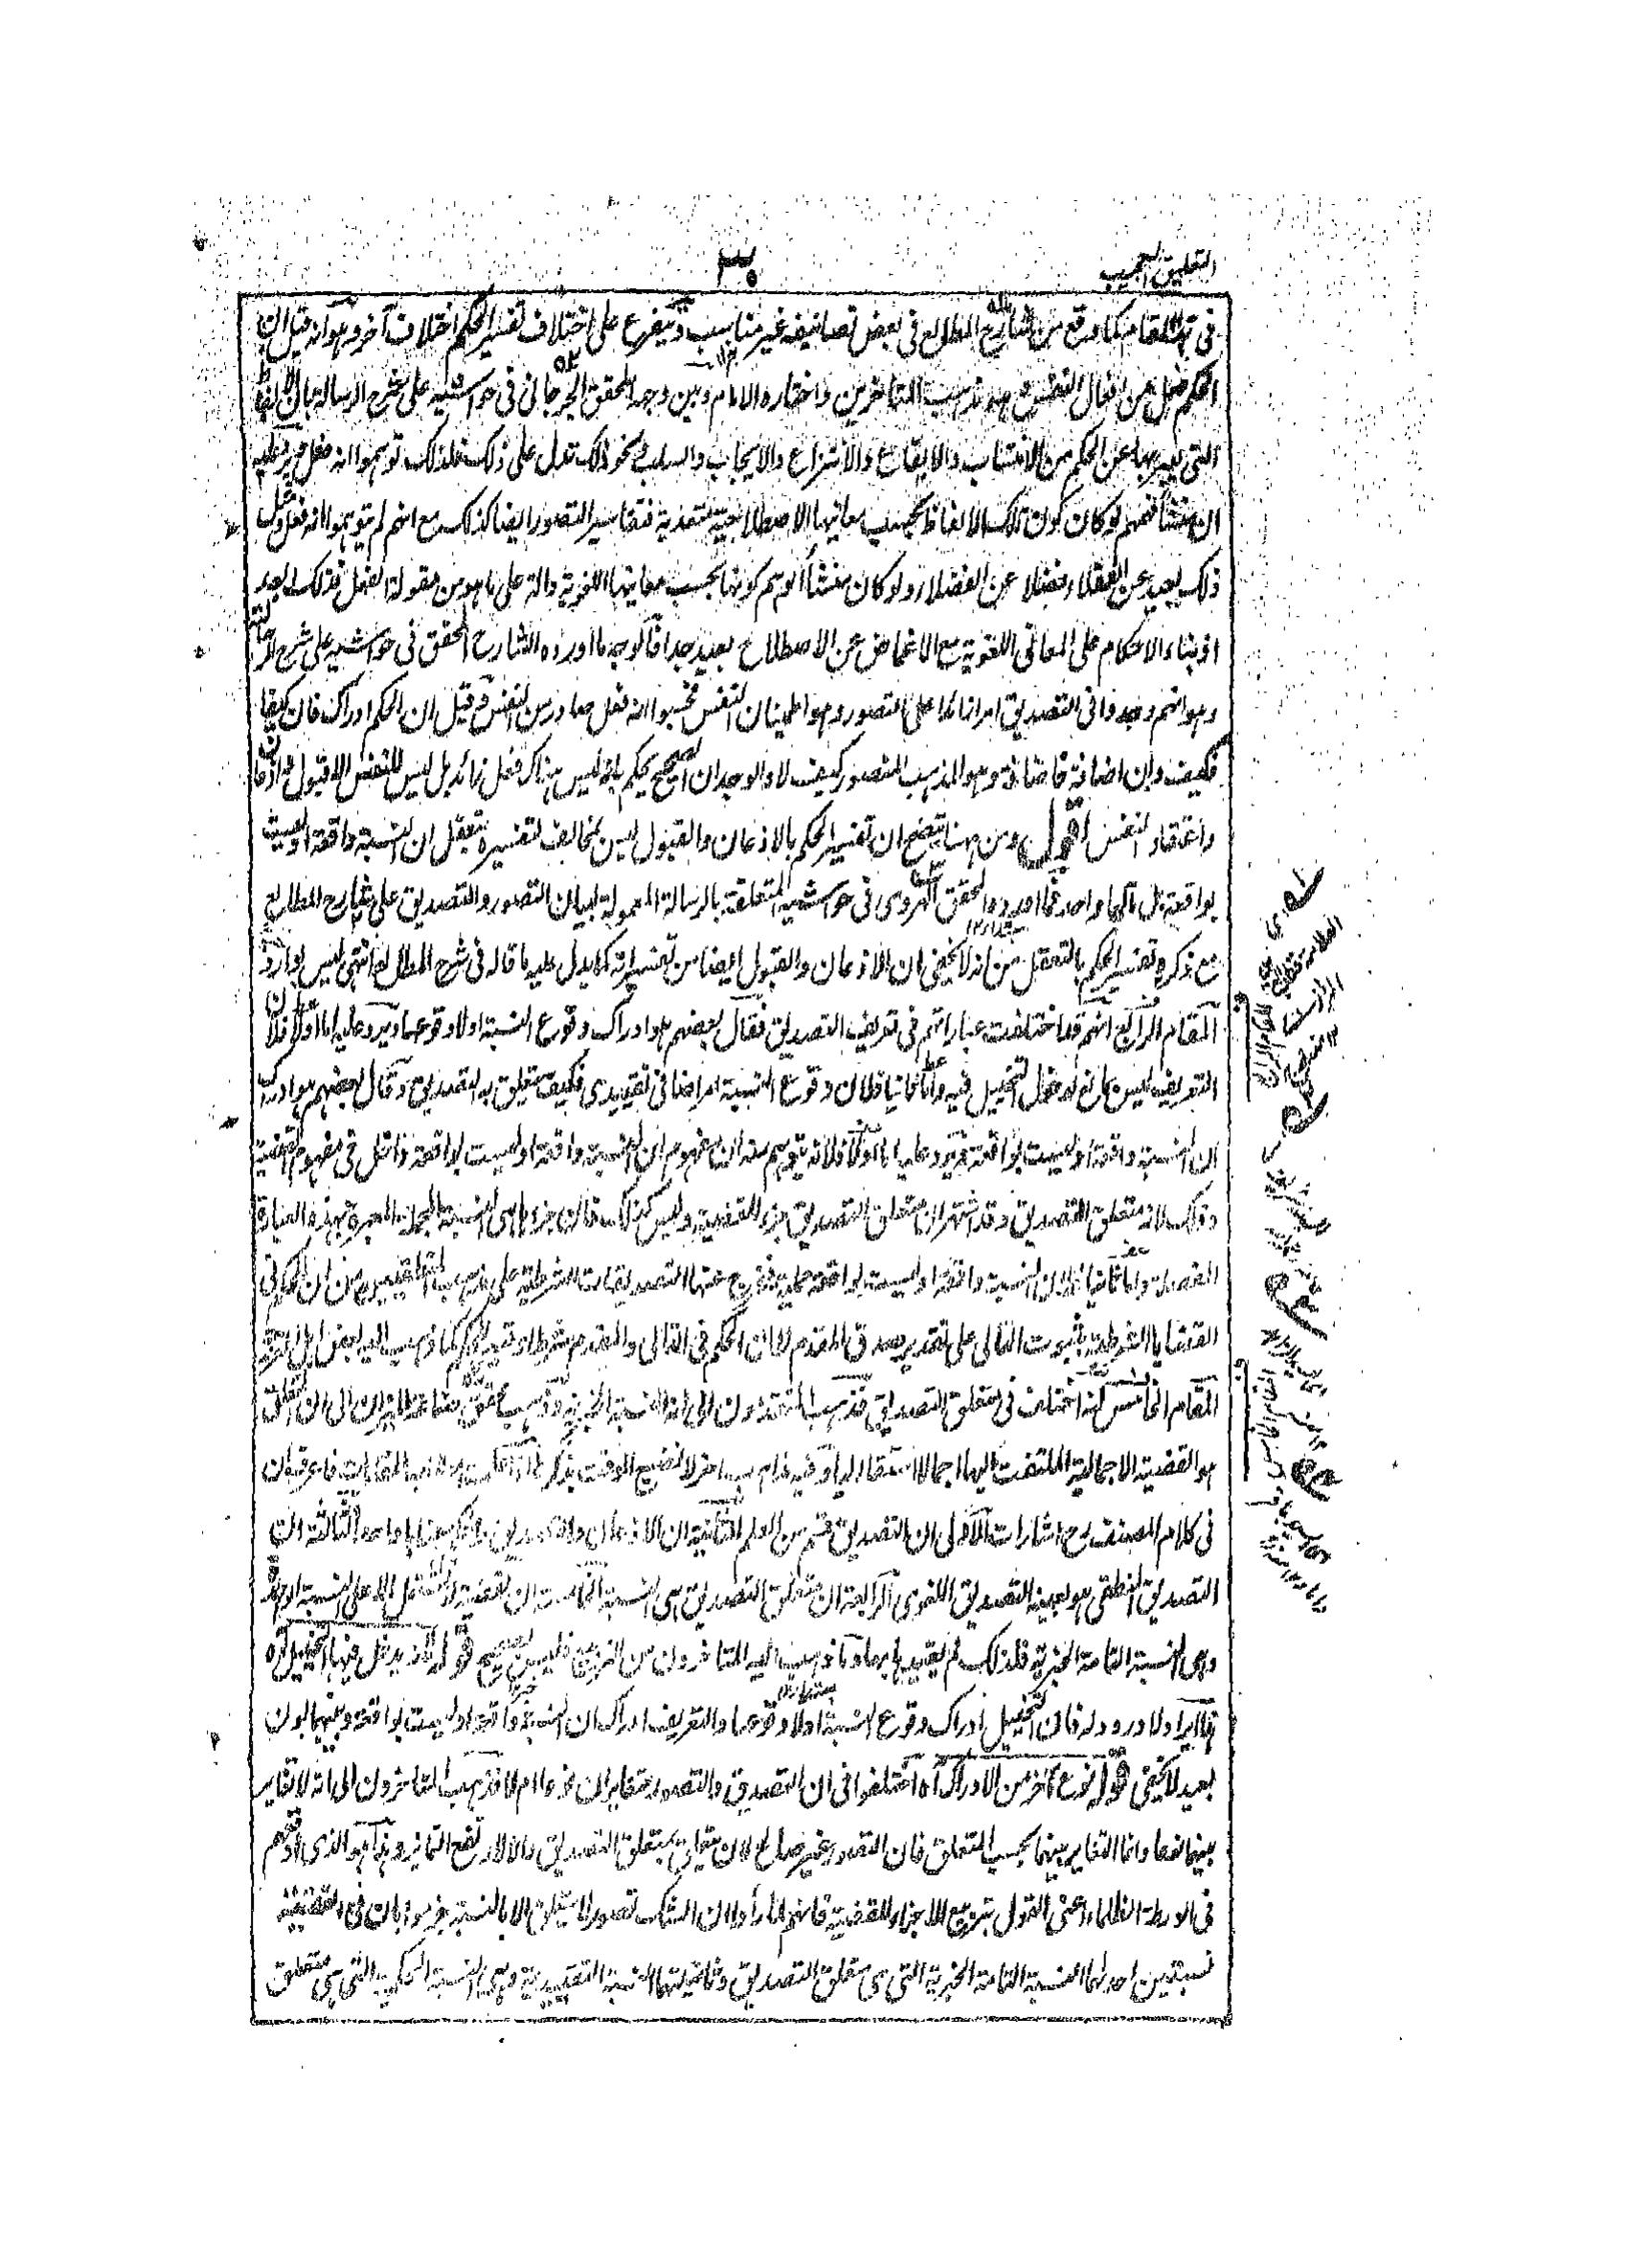 التعليق العجيب
٣٠
في هذا المقام كما وقع من شارح المطالع في بعض تصانيفه غير مناسب وتيفرع على اختلاف تفسير الحكم اختلاف آخر وهو انه قيل ان
الحكم فعل من افعال النفس وهو مذهب المتاخرين واختاره الامام وبين وجهه المحقق الجرجاني في حواشيه على شرح الرسالة بان الالفاظ
التي يعبر بها عن الحكم من الانتساب والايقاع والانتزاع والايجاب والسلب ونحو ذلك تدل على ذلك فلذلك توهموا انه فعل ويرد عليه
ان منشأ فهمهم لو كان كون تلك الالفاظ بحسب معانيها الاصطلاحية متعدية فتفاسير التصور ايضا كذلك مع انهم لم يتوهموا انه فعل ومثل
ذلك بعيد عن العقلاء فضلا عن الفضلاء ولو كان منشأ الوهم كونها بحسب معانيها اللغوية دالة على ما هو من مقولة الفعل فذلك ابعد
اذ بناء الاحكام على المعاني اللغوية مع الاغماض عن الاصطلاح بعيد جدا فالوجه ما اورده الشارح المحقق في حواشيه على شرح
وهو انهم وجدوا في التصديق امرا زائدا على التصور وهو اطمينان النفس فحسبوا انه فعل صادر من النفس وقيل ان الحكم ادراك فان كيفا
فكيف وان اضافة فاضافة وهو المذهب المنصور كيف لا والوجدان الصحيح يحكم بانه ليس هناك فعل زائد بل ليس للنفس الا قبول واذعان
واعتقاد النفس اقول ومن ههنا يتضح ان تفسير الحكم بالاذعان والقبول ليس بمخالف لتفسيره بتعقل ان النسبة واقعة او ليست
بواقعة بل مآلهما واحد فما اورده المحقق الهروي في حواشيه المتعلقة بالرسالة المعمولة لبيان التصور والتصديق على شارح المطالع
مع ذكره تفسير الحكم بالتعقل من انه لا يخفى ان الاذعان والقبول ايضا من تفسيراته كما يدل عليه ما قاله في شرح المطالع انتهى ليس بوارد
المقام الرابع انهم قد اختلفت عباراتهم في تعريف التصديق فقال بعضهم هو ادراك وقوع النسبة او لا وقوعها ويرد عليه اما اولا فلان
التعريف ليس بمانع لدخول التخييل فيه واما ثانيا فلان وقوع النسبة امر اضافي تقييدي فكيف يتعلق به التصديق وقال بعضهم هو ادراك
ان النسبة واقعة او ليست بواقعة ويرد عليه اما اولا فلانه يتوهم منه ان مفهوم ان النسبة واقعة او ليست بواقعة داخل في مفهوم القضية
وذلك لانه متعلق التصديق وقد اشتهر ان متعلق التصديق جزء للقضية وليس كذلك فان جزءها هي النسبة المجملة المعبرة بهذه العبارة
المفصلة واما ثانيا فلان النسبة واقعة او ليست بواقعة حملية فتخرج عنها التصديقات الشرطية على مذهب المنطقيين من ان الحكم في
القضايا الشرطية بثبوت التالي على تقدير صدق المقدم لا ان الحكم في التالي والمقدم شرط او قيد للحكم كما ذهب اليه بعض اهل العربية
المقام الخامس انه اختلف في متعلق التصديق فذهب المتقدمون الى انه النسبة الخبرية وذهب الى ان المتعلق
هو القضية الاجمالية الملتفت اليها اجمالا استقلاليا وفيه مذاهب اخر لا نضيع الوقت بذكرها اذا علمت هذه المقامات فاعرف ان
في كلام المصنف رح اشارات الاولى ان التصديق قسم من العلم الثانية ان الاذعان والتصديق والحكم معناها واحد الثالثة ان
التصديق المنطقي هو بعينه التصديق اللغوي الرابعة ان متعلق التصديق هي النسبة الخامسة ان القضية لا تشتمل الا على النسبة الواحدة
وهي النسبة التامة الخبرية فلذلك لم يقيدها بها وما ذهب اليه المتاخرون من التربيع فليس بصحيح قوله لانه يدخل فيها التخييل آه
هذا ايراد لا ورود له فان التخييل ادراك وقوع النسبة او لا وقوعها والتعريف ادراك ان النسبة واقعة او ليست بواقعة وبينهما بون
بعيد لا يخفى قوله نوع آخر من الادراك آه اختلفوا في ان التصديق والتصور متغايران نوعا ام لا فذهب المتاخرون الى انه لا تغاير
بينهما نوعا وانما التغاير بينهما بحسب المتعلق فان التصور غير صالح لان يتعلق بمتعلق التصديق والا لارتفع التمايز وهذا هو الذي اوقعهم
في الورطة الظلماء اعني القول بتربيع الاجزاء للقضية فانهم لما رأوا ان الشك تصور لا يتعلق الا بالنسبة فزعموا بان في القضية
نسبتين احدهما النسبة التامة الخبرية التي هي متعلق التصديق وثانيتهما النسبة التقييدية وهي النسبة الحكمية التي هي متعلق